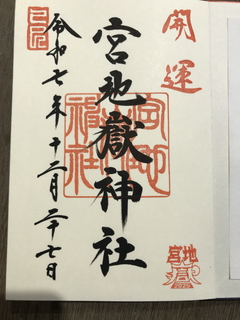 開運
宮地嶽神社
令和七年十二月二十七日
宮地
嶽